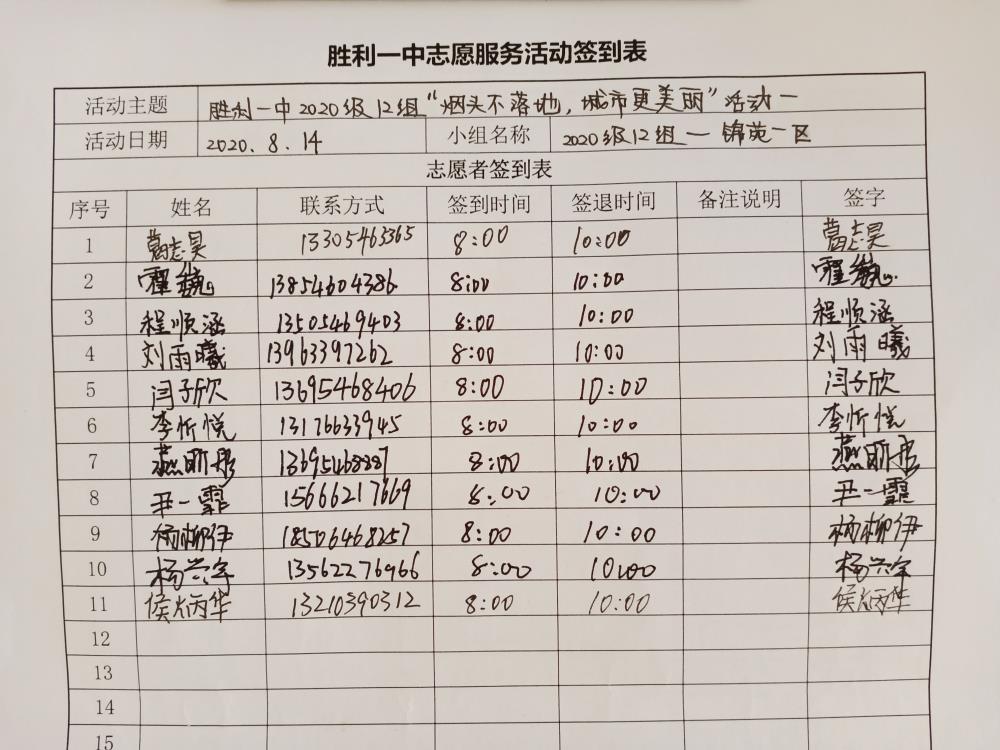 胜利一中志愿服务活动签到表
活动主题 胜利一中2020级12组“烟头不落地，城市更美丽”活动一
活动日期 2020.8.14 小组名称 2020级12组—锦苑一区
志愿者签到表
序号 姓名 联系方式 签到时间 签退时间 备注说明 签字
1 葛志昊 13305463365 8:00 10:00 葛志昊
2 霍巍 13854604386 8:00 10:00 霍巍
3 程顺涵 13505469403 8:00 10:00 程顺涵
4 刘雨曦 13963397262 8:00 10:00 刘雨曦
5 闫子欣 13695468406 8:00 10:00 闫子欣
6 李忻悦 13176633945 8:00 10:00 李忻悦
7 燕昕彤 13695468887 8:00 10:00 燕昕彤
8 尹一霏 15666217669 8:00 10:00 尹一霏
9 杨柳伊 18506468257 8:00 10:00 杨柳伊
10 杨兴宇 13562276966 8:00 10:00 杨兴宇
11 侯炳华 13210390312 8:00 10:00 侯炳华
12
13
14
15